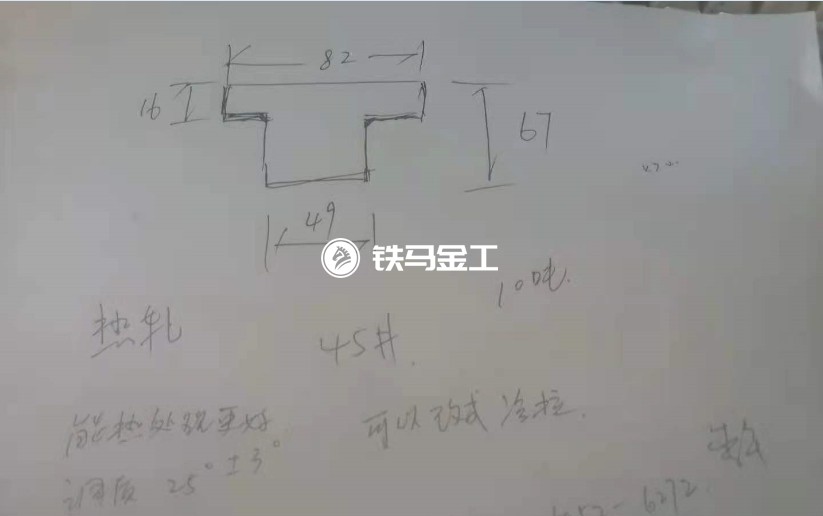 82
16
67
49
铁马金工
10吨.
热轧
45井.
能热处理更好
可以改成冷拉.
调质 25°±3°
6272